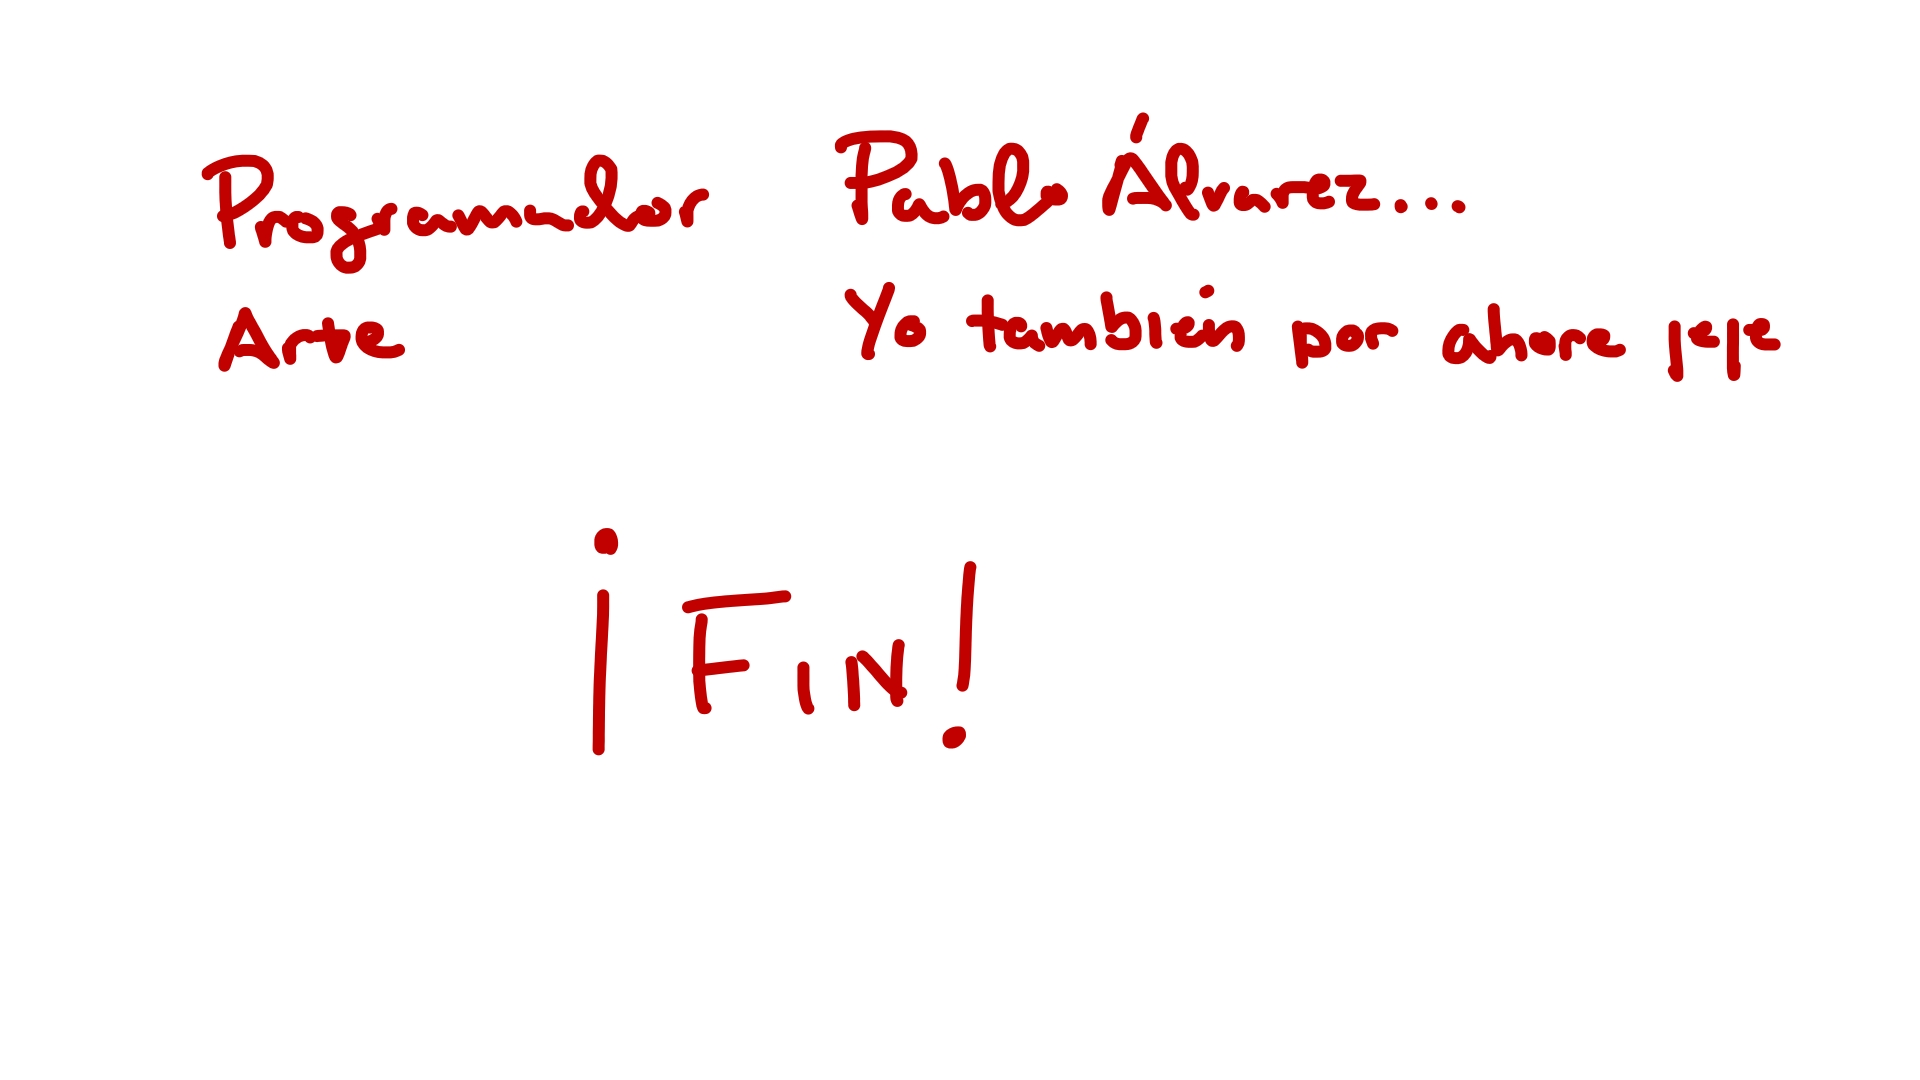 Programador Pablo Álvarez...
Arte Yo también por ahora jeje
¡FIN!